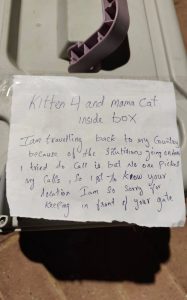 Kitten 4 and mama cat
inside box
I am travelling back to my Country
because of the Situtions going on here
I tried to Call is but no one Picked
my calls. So I get to know your
location I am so sorry for
Keeping in front of your gate